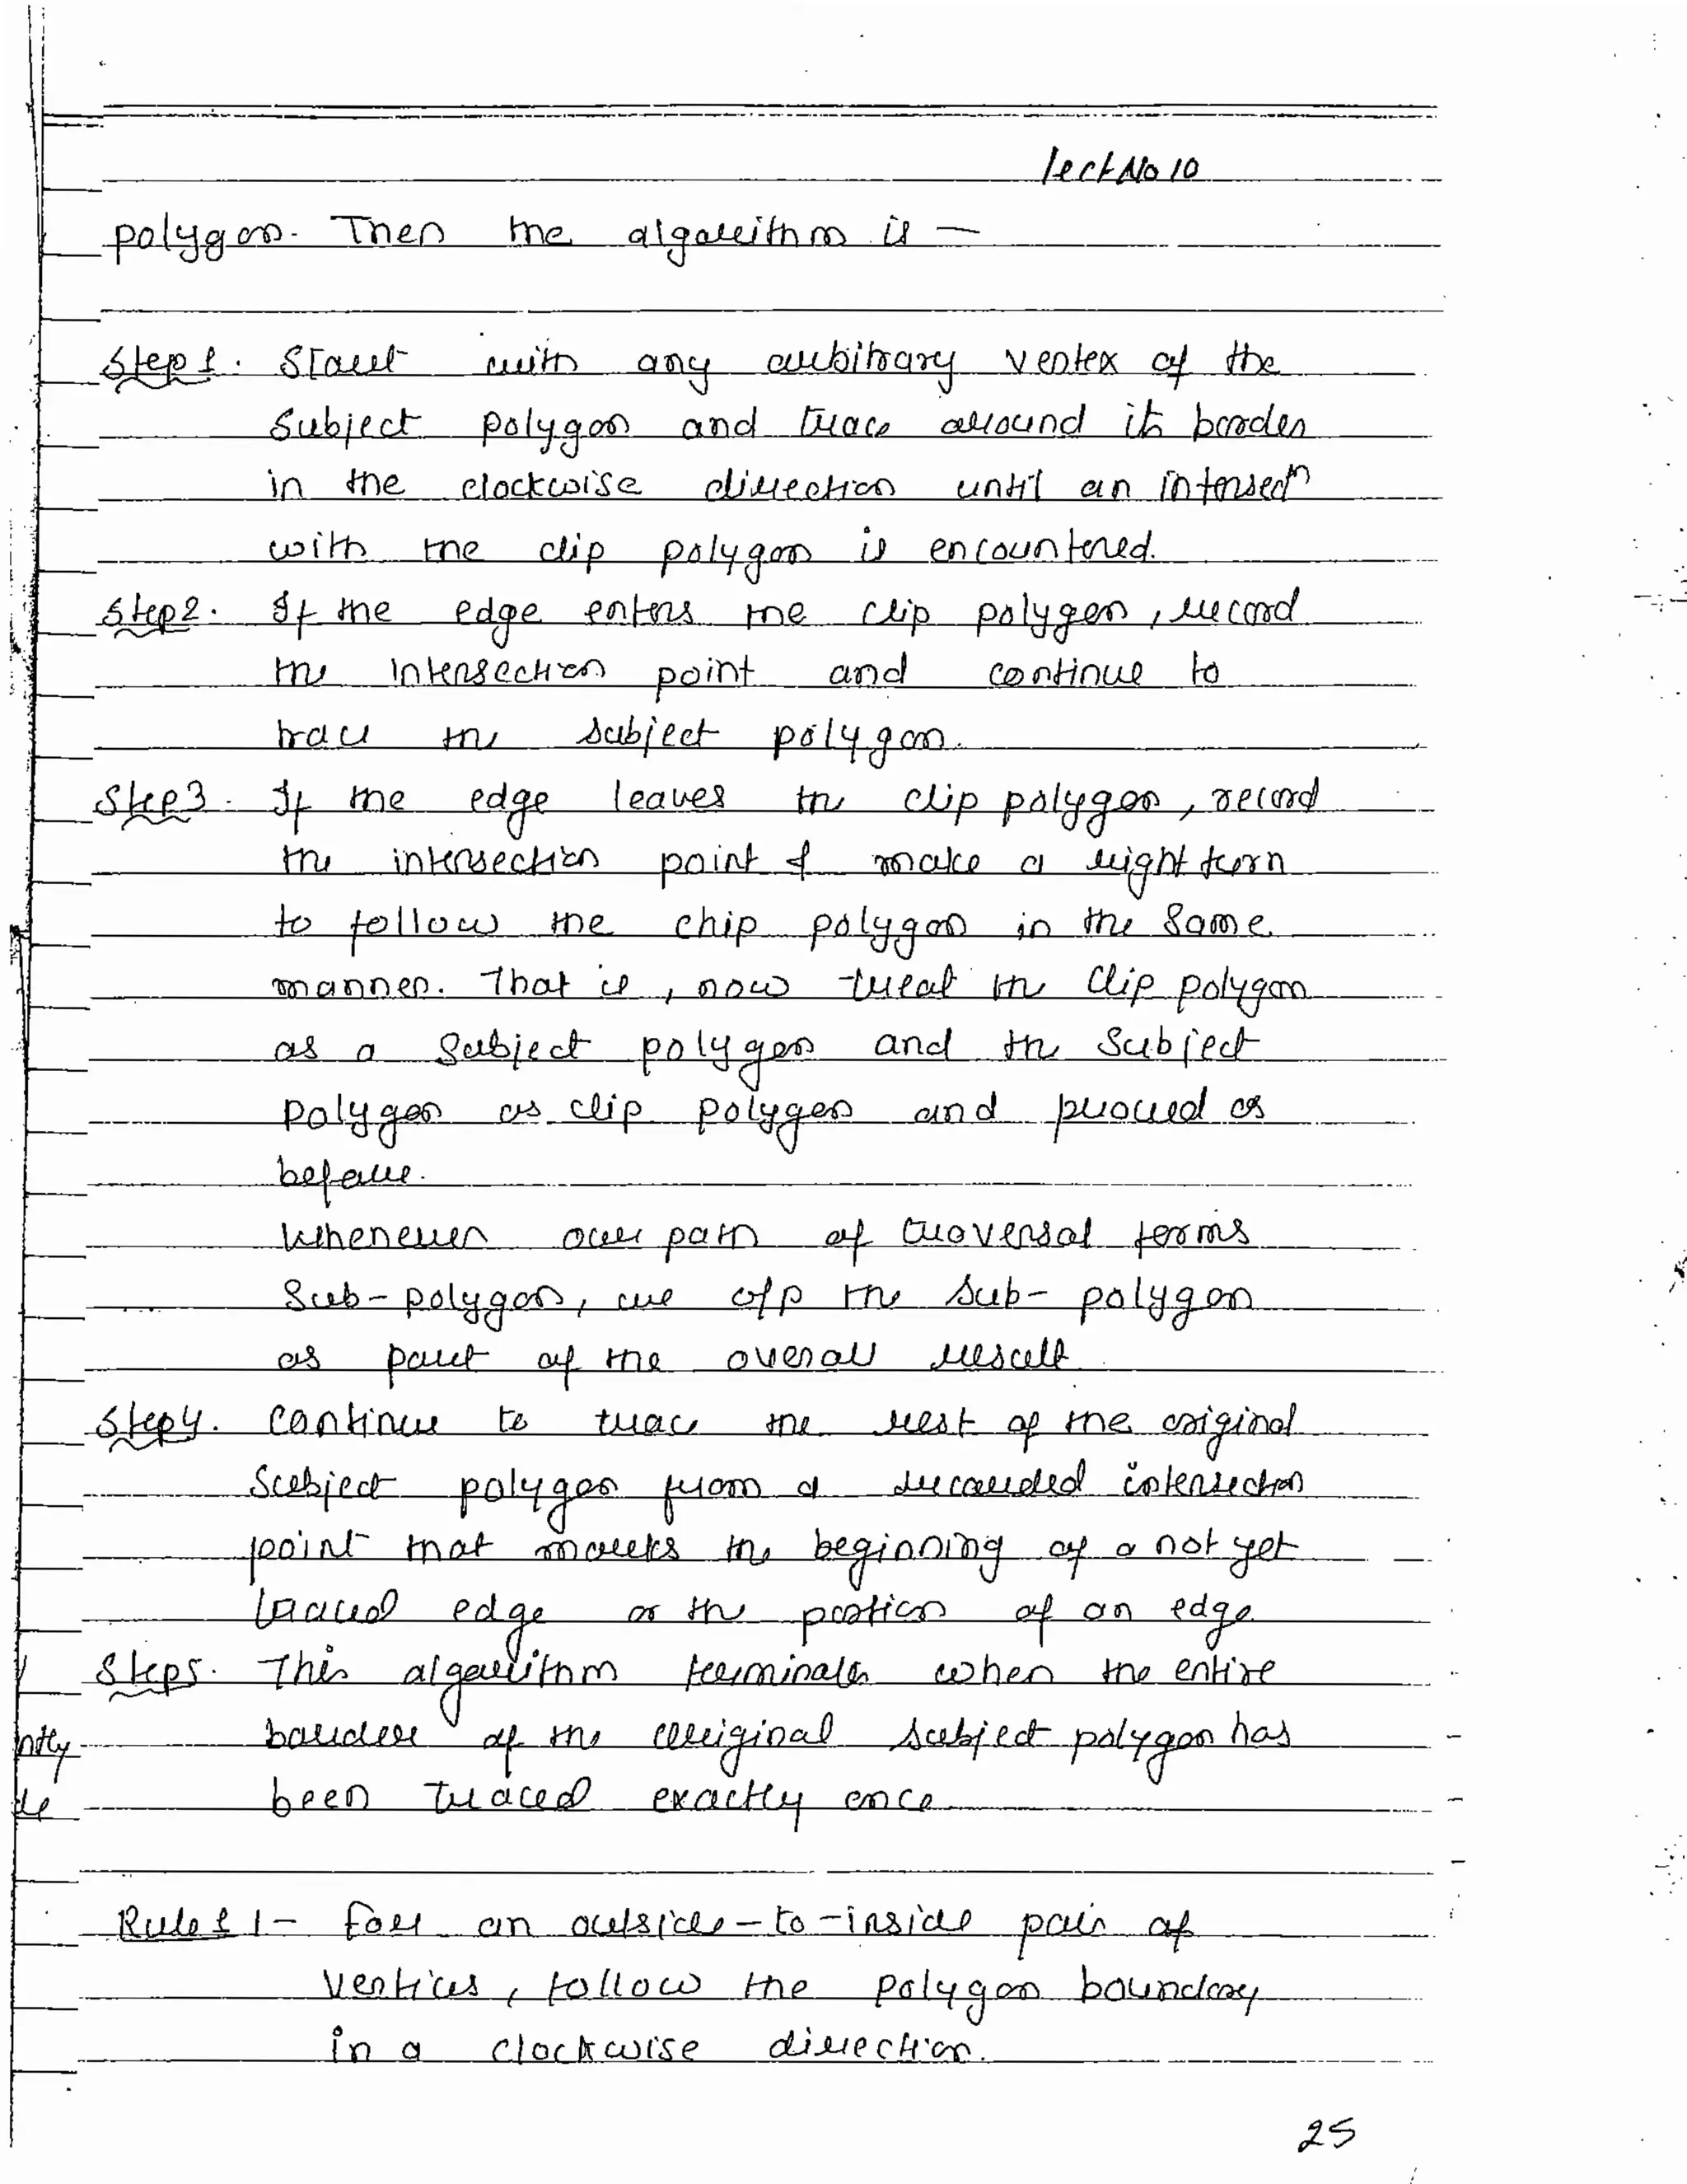 lect No 10
polygon. Then the algorithm is —
Step 1. Start with any arbitrary vertex of the
Subject polygon and trace around its border
in the clockwise direction until an intersecⁿ
with the clip polygon is encountered.
Step2. If the edge enters the clip polygon, record
the intersection point and continue to
trace the subject polygon.
Step3. If the edge leaves the clip polygon, record
the intersection point & make a right turn
to follow the chip polygon in the same
manner. That is, now treat the Clip polygon
as a subject polygon and the Subject
polygon as clip polygon and proceed as
before.
Whenever our path of traversal forms
Sub-polygon, we o/p the sub-polygon
as part of the overall result
Step4. Continue to trace the rest of the original
Subject polygon from a recorded intersection
point that marks the beginning of a not yet
traced edge or the portion of an edge
Step5. This algorithm terminates when the entire
ntly
border of the original subject polygon has
le
been traced exactly once
Rule 1 - For an outside-to-inside pair of
vertices, follow the polygon boundary
in a clockwise direction.
25